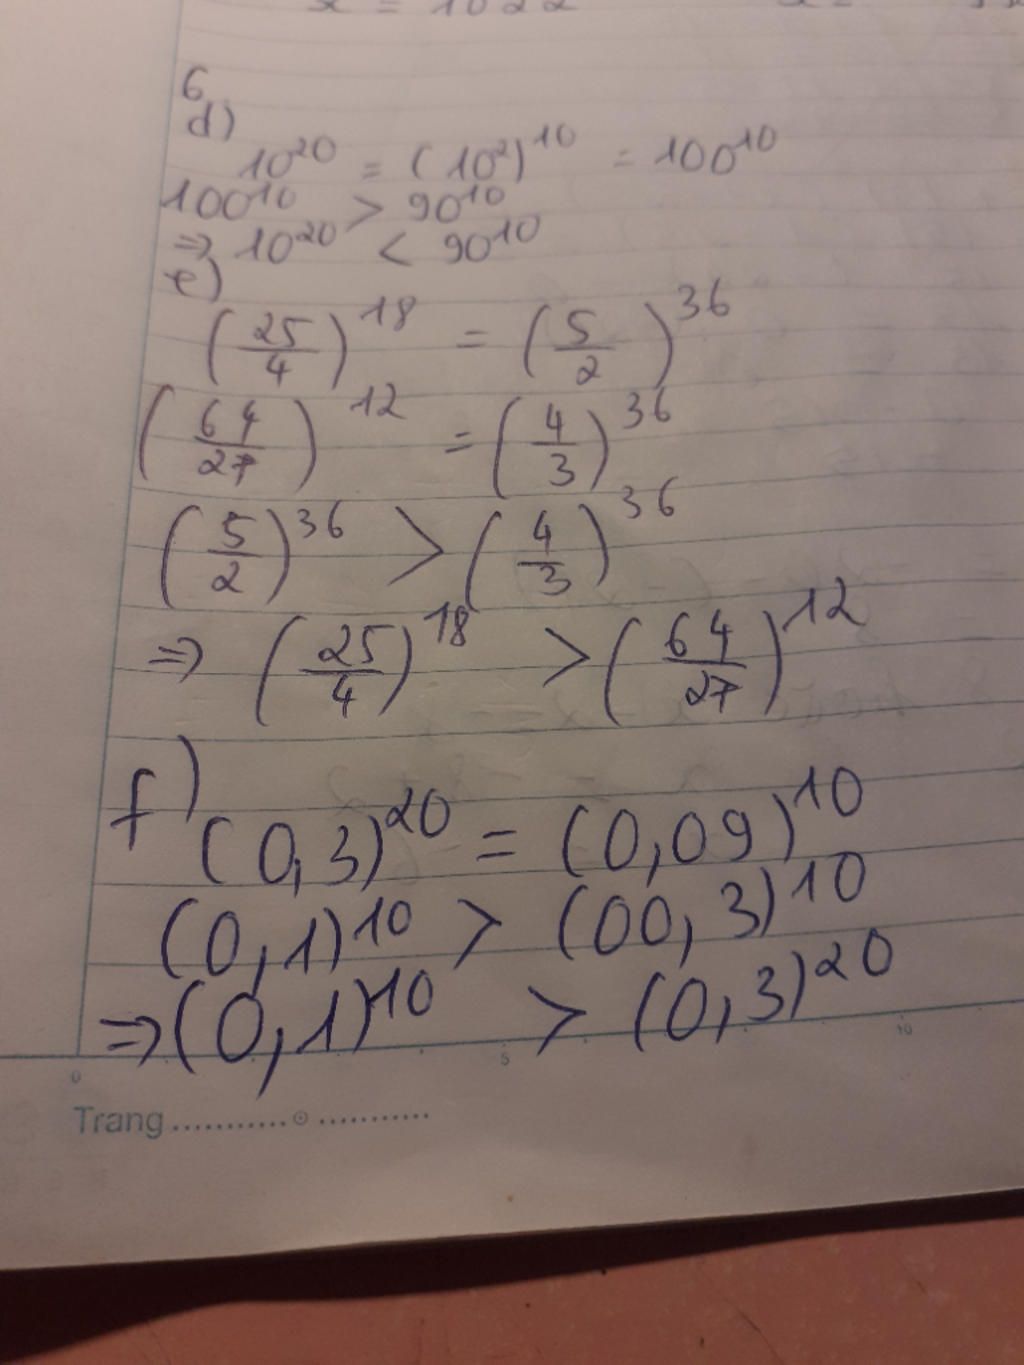 x = 1022
6
d)
10²⁰ = (10²)¹⁰ = 100¹⁰
100¹⁰ > 90¹⁰
⇒ 10²⁰ < 90¹⁰
e)
(25/4)¹⁸ = (5/2)³⁶
(64/27)¹² = (4/3)³⁶
(5/2)³⁶ > (4/3)³⁶
⇒ (25/4)¹⁸ > (64/27)¹²
f)
(0,3)²⁰ = (0,09)¹⁰
(0,1)¹⁰ > (00,3)¹⁰
⇒ (0,1)¹⁰ > (0,3)²⁰
0 5 10
Trang ........... ...........